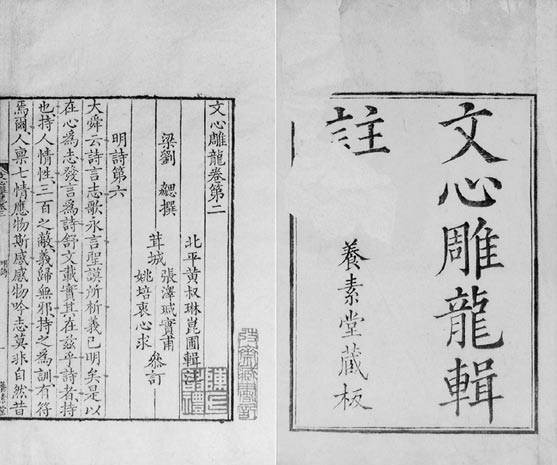 文心雕龍輯
註
養素堂藏板
文心雕龍卷第二
梁劉 勰撰
北平黃叔琳崑圃輯
茸城 張澤瑊實甫
姚培衷心求 參訂
明詩第六
大舜云詩言志歌永言聖謨所析義已明矣是以
在心為志發言為詩舒文載實其在兹乎詩者持
也持人情性三百之蔽義歸無邪持之為訓有符
焉爾人禀七情應物斯感感物吟志莫非自然昔